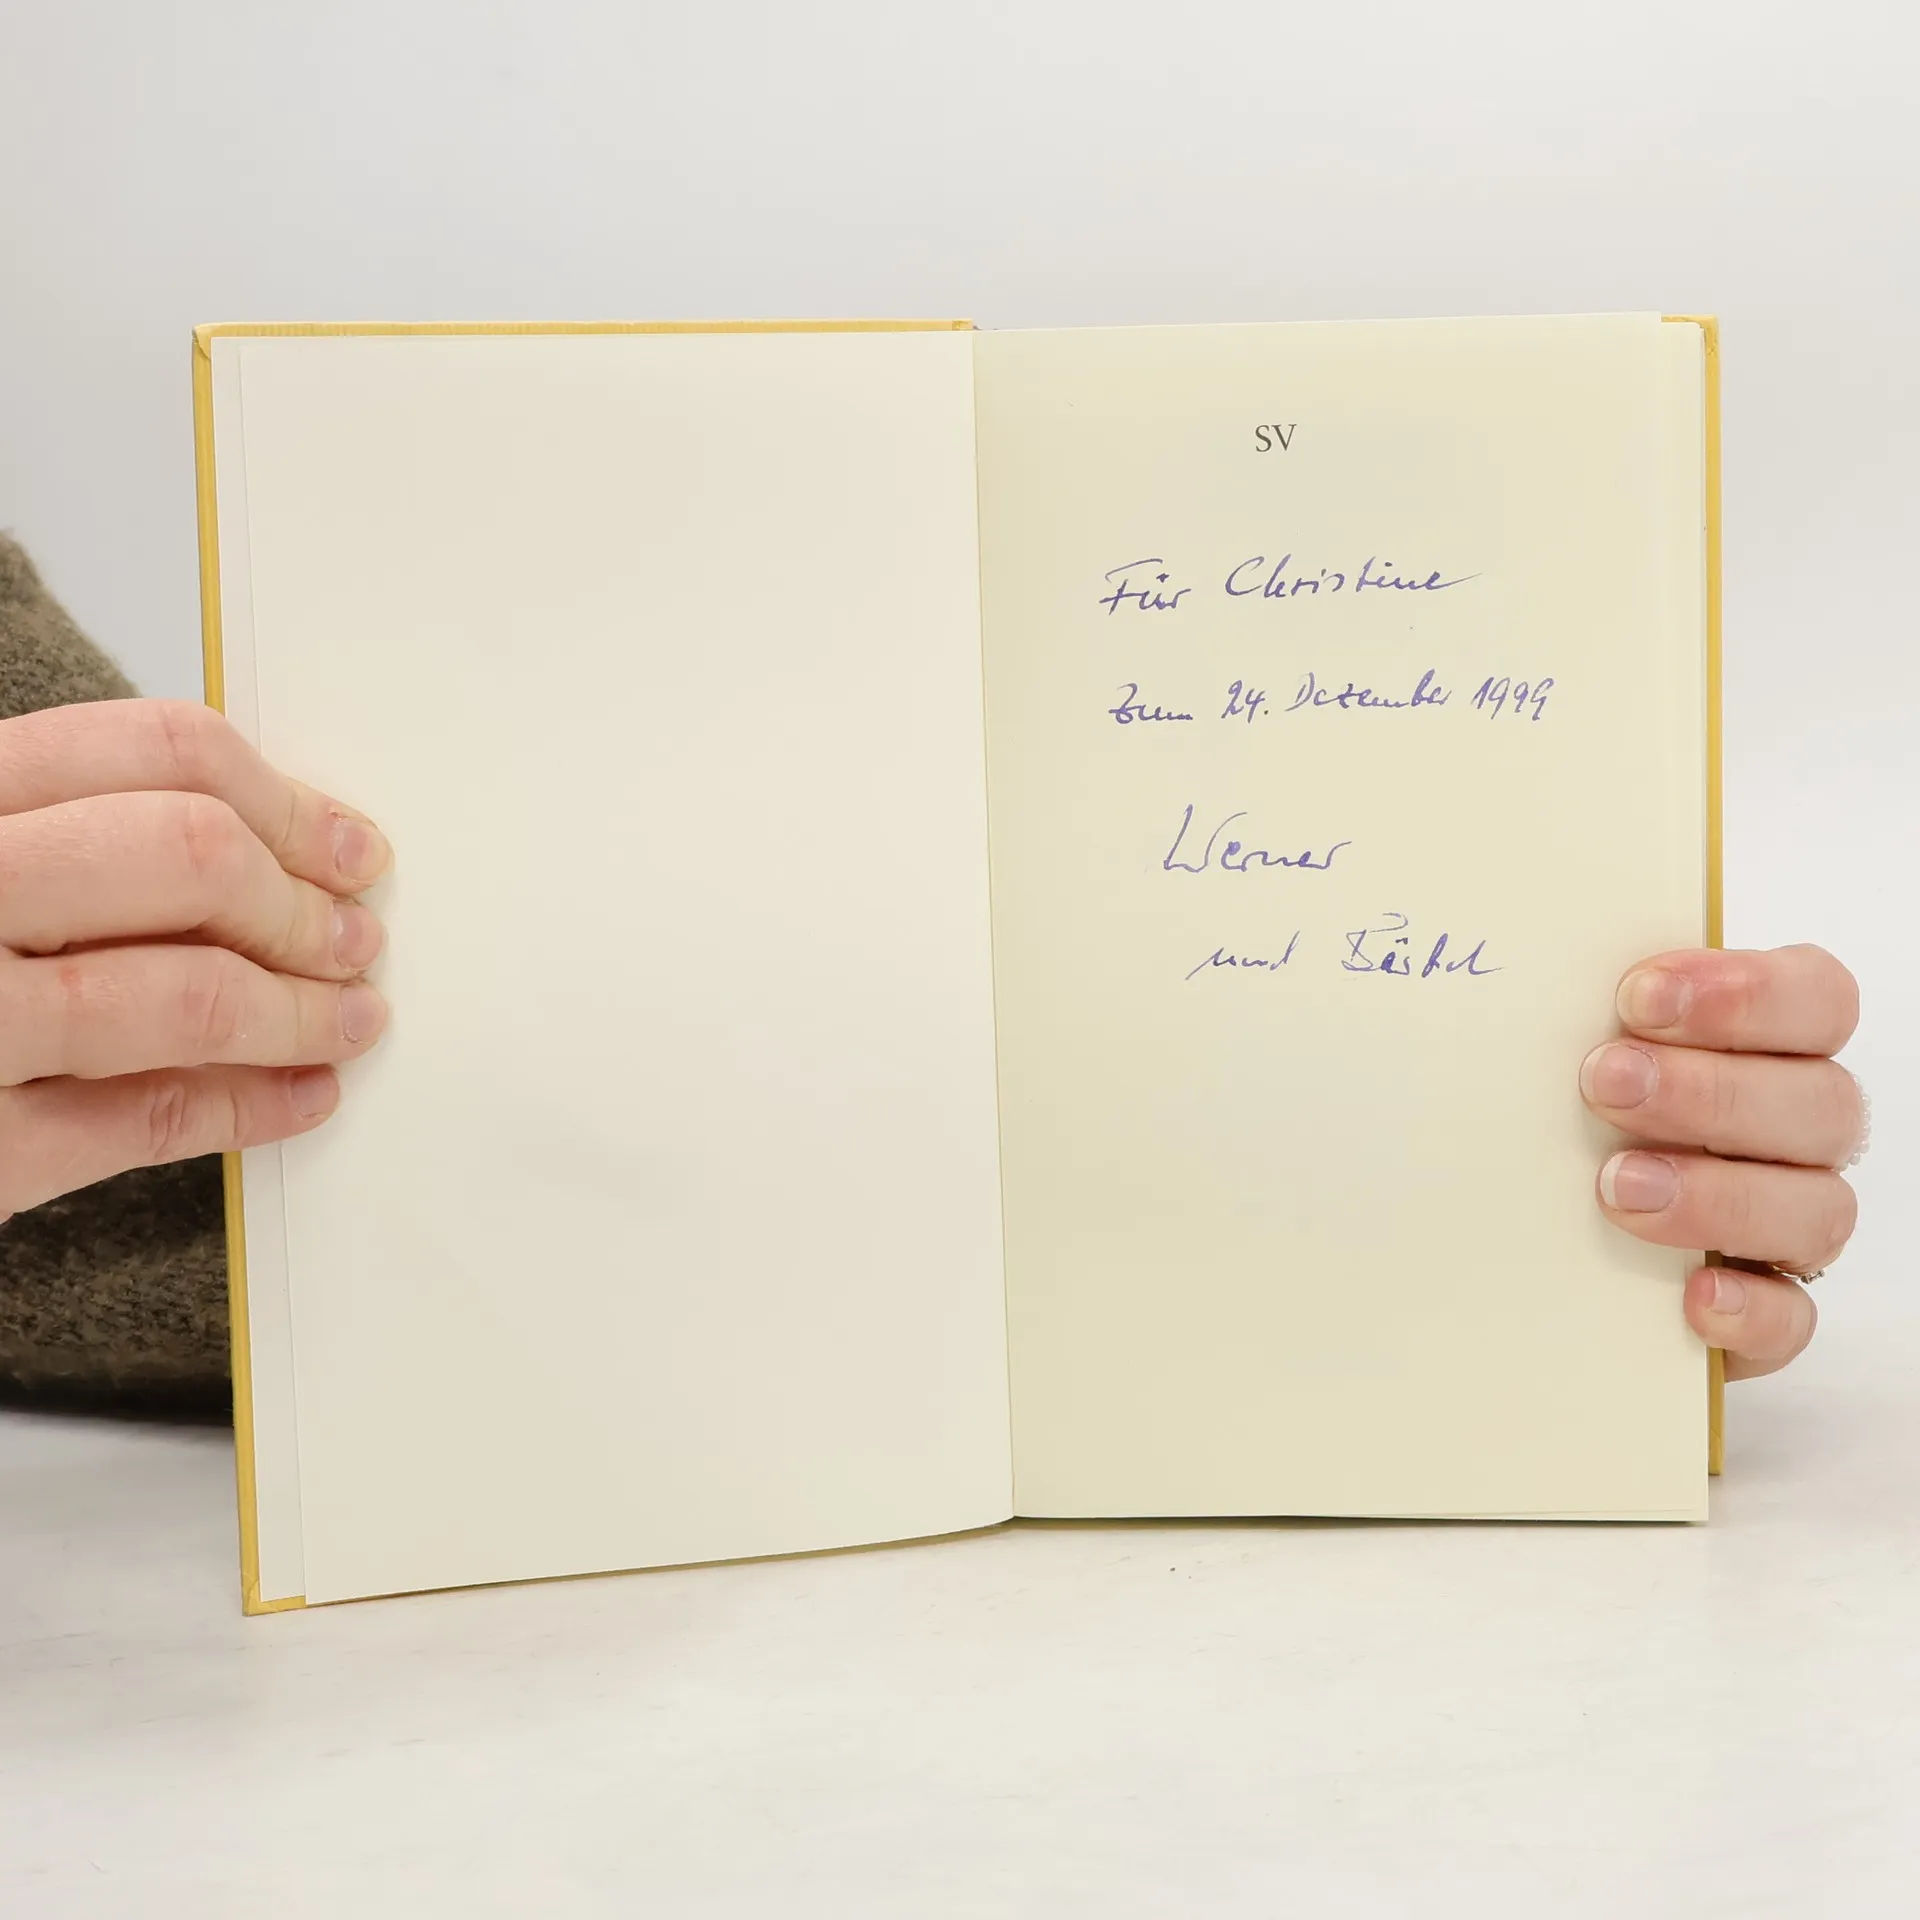 SV
Für Christine
zum 24. Dezember 1999
Werner
und Bärbel